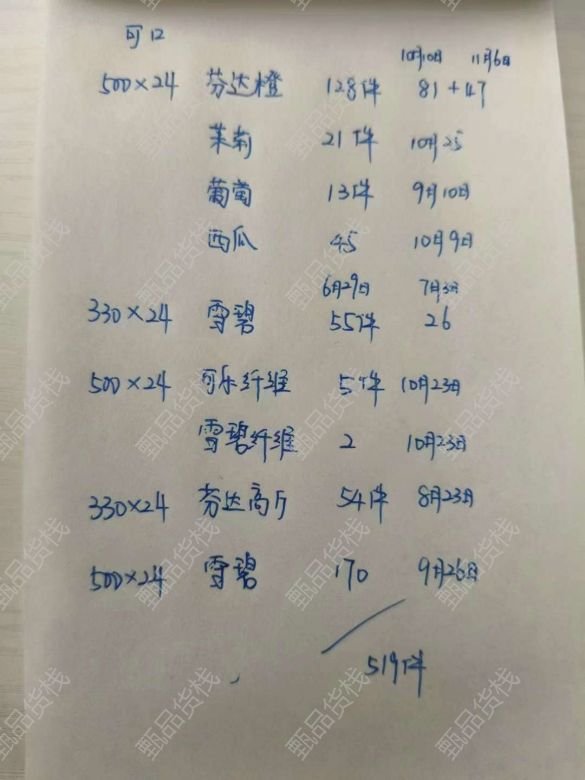 可口
10月10日 11月6日
500×24 芬达橙 128件 81+47
茉莉 21件 10月25
葡萄 13件 9月10日
西瓜 45 10月9日
6月29日 7月3日
330×24 雪碧 55件 26
500×24 可乐纤维 5件 10月23日
雪碧纤维 2 10月23日
330×24 芬达高斤 54件 8月23日
500×24 雪碧 170 9月26日
519件
甄品货栈